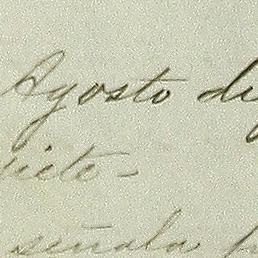 Agosto di
siete-
señala p